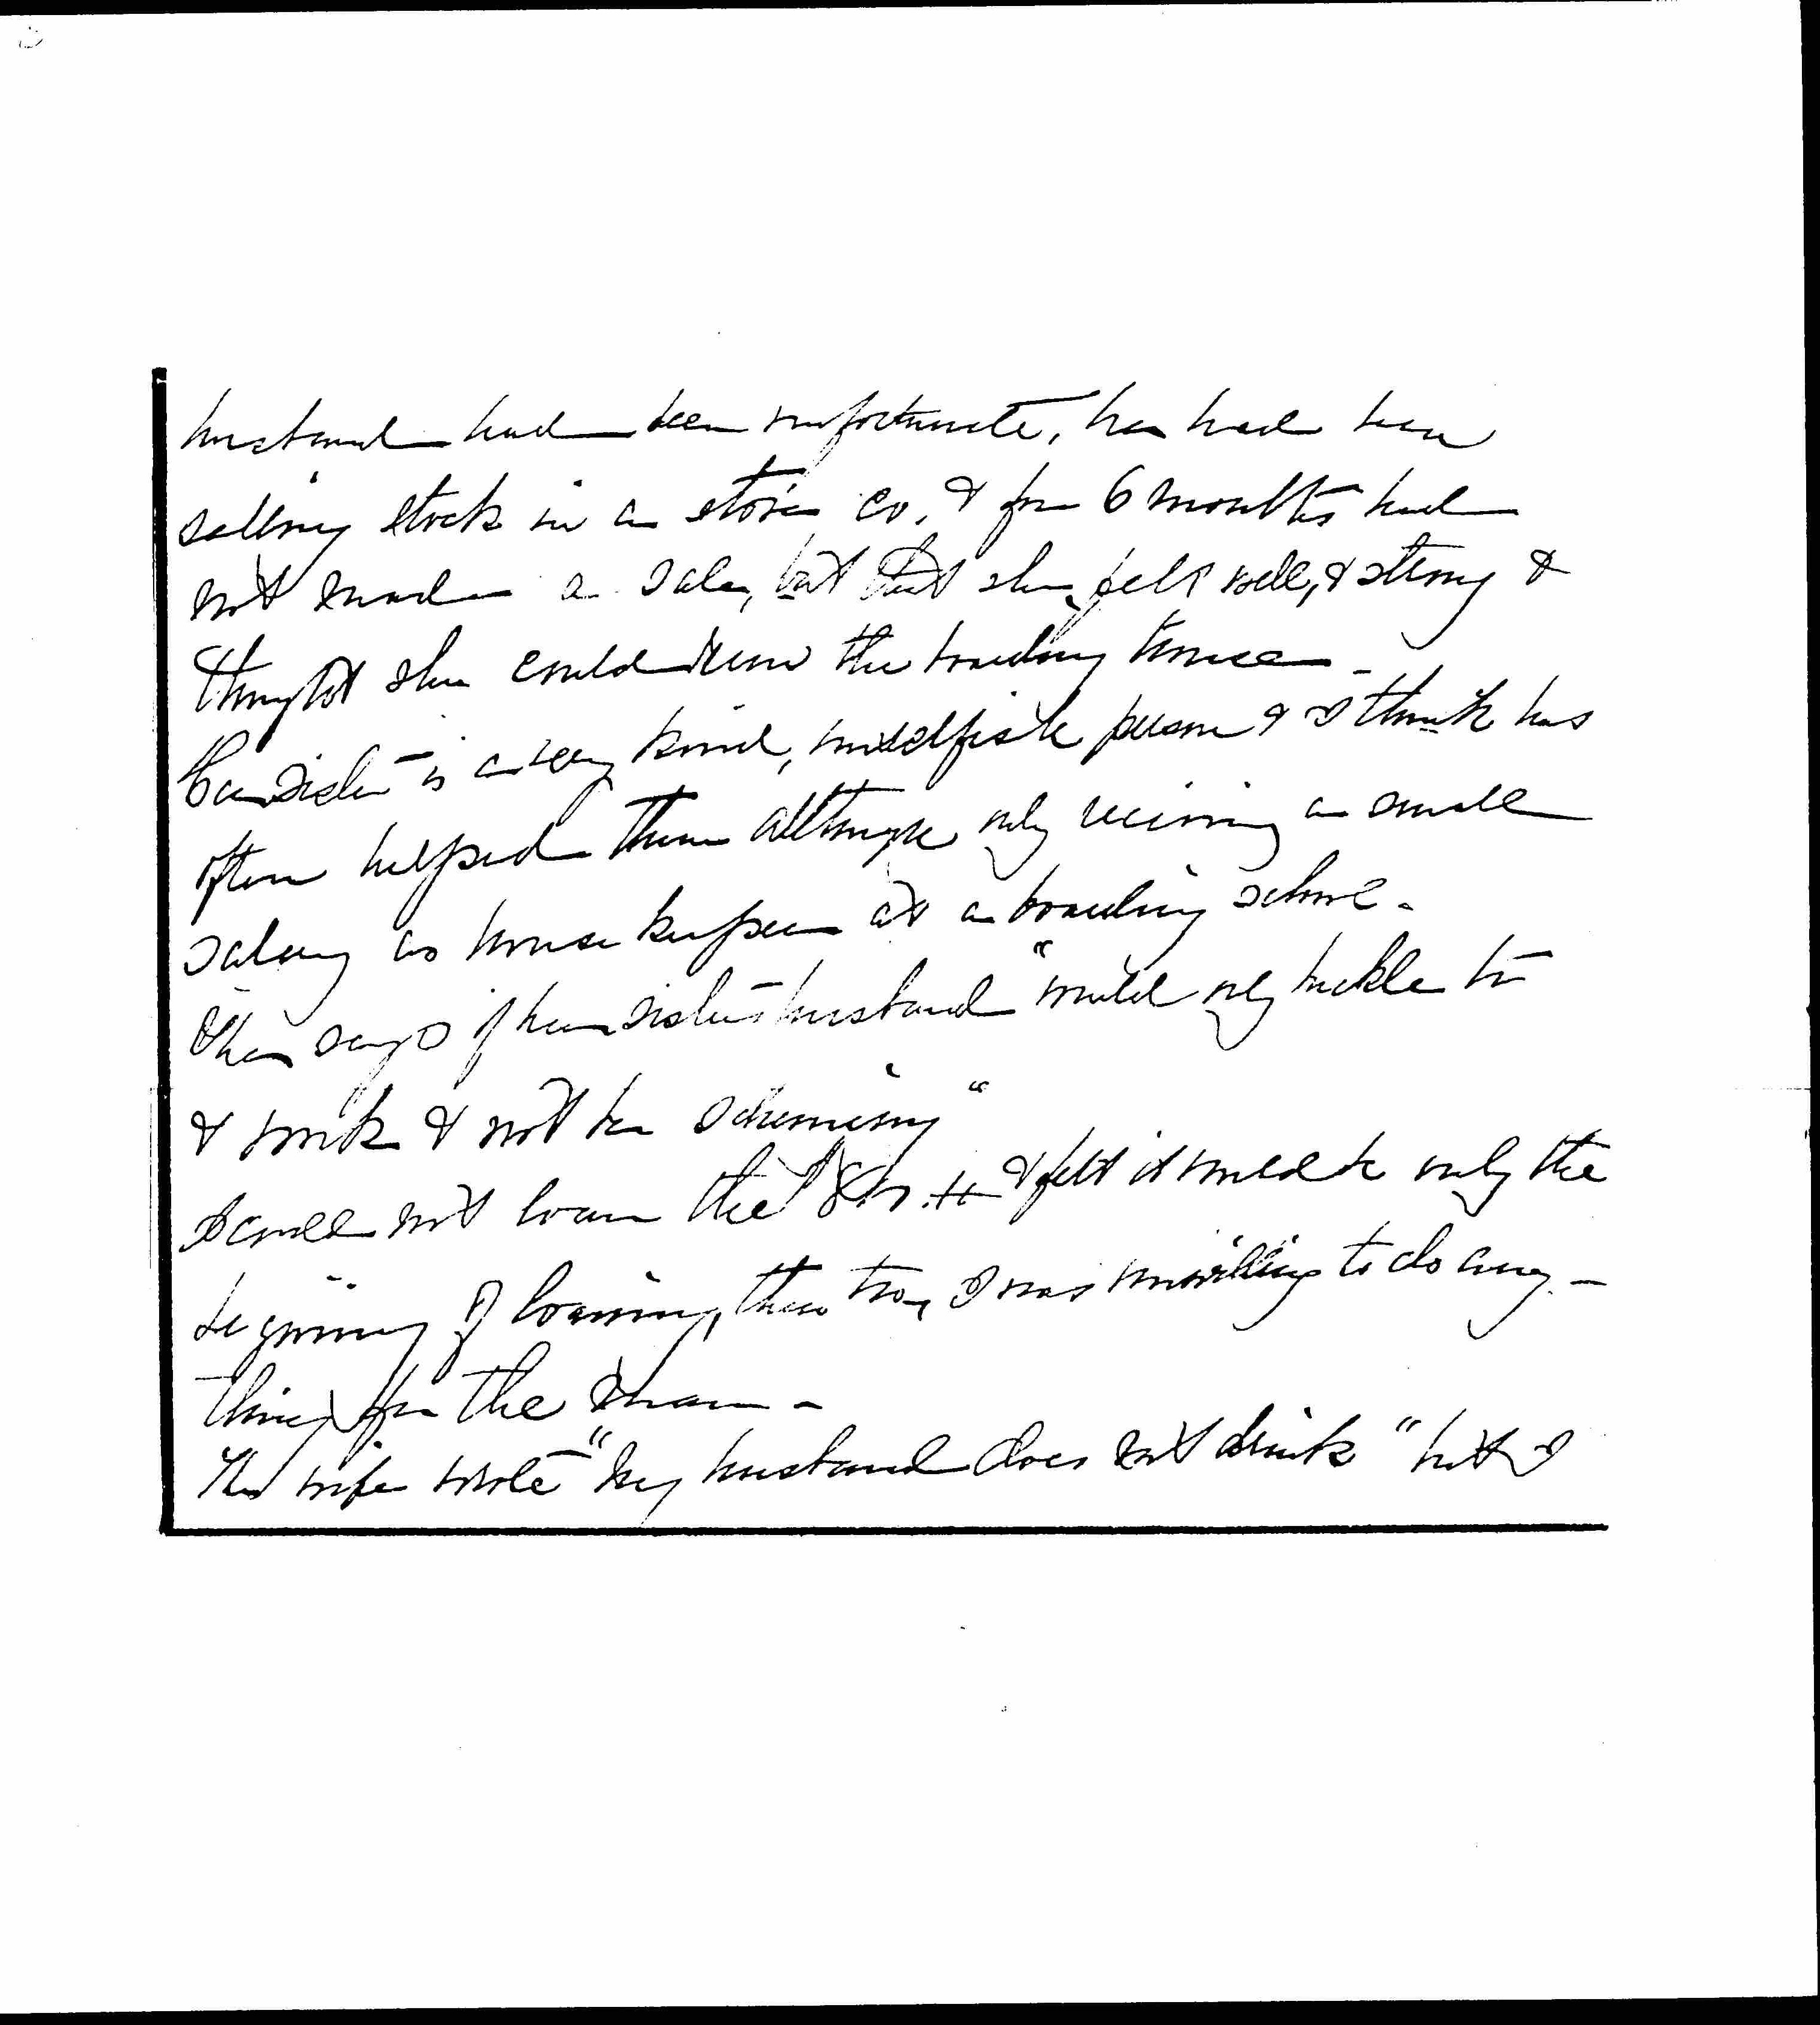 husband had been unfortunate, he had been
selling stock in a store co, & for 6 months had
not made a sale, but that she felt well, & strong &
thought she could run the boarding house -
Her sister is a very kind, unselfish person & I think has
often helped them although only receiving a small
salary as house keeper at a boarding school.
She says if her sister's husband "would only buckle to
& work & not be scheming"
I could not loan the & felt it would be only the
beginning of loaning, then too, I was unwilling to do any-
thing for the man -
The wife wrote "my husband does not drink" but I